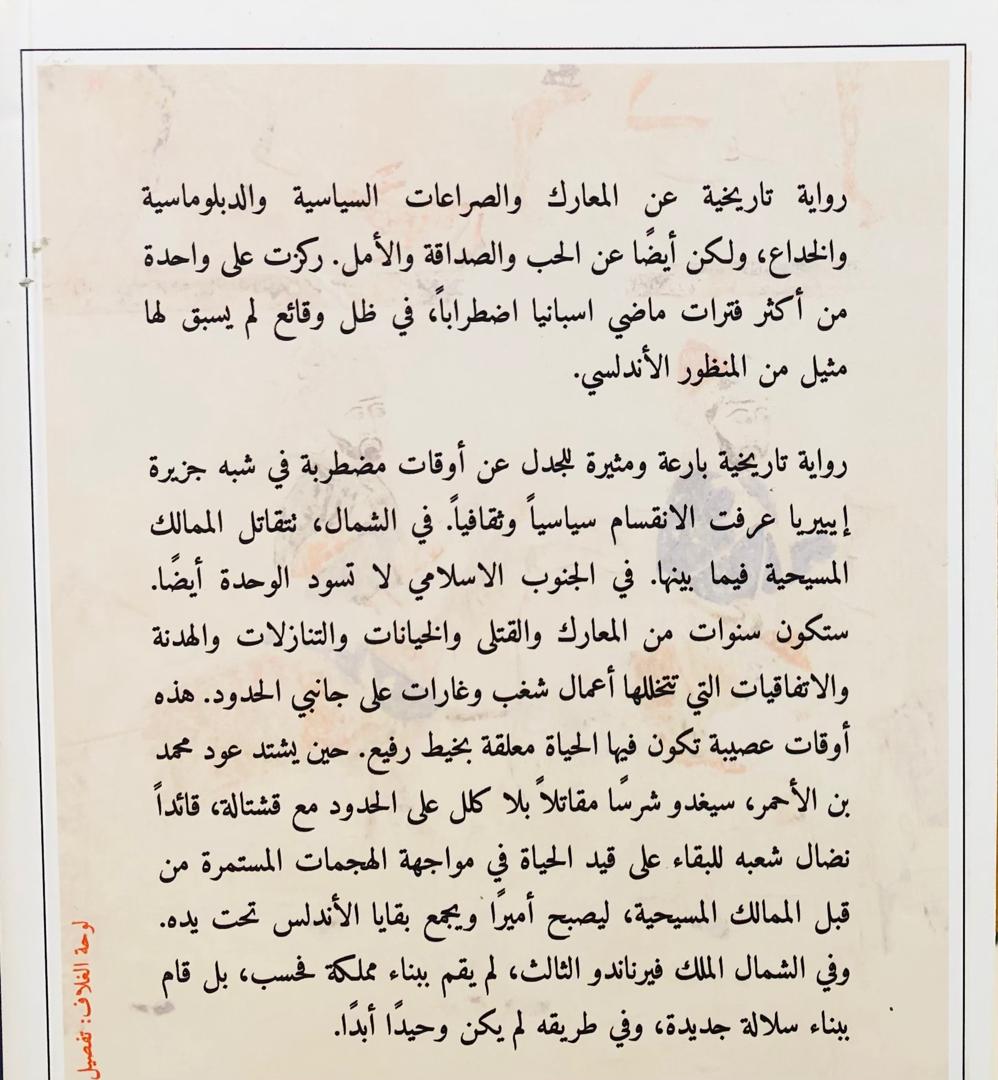 رواية تاريخية عن المعارك والصراعات السياسية والدبلوماسية
والخداع، ولكن أيضًا عن الحب والصداقة والأمل. ركزت على واحدة
من أكثر فترات ماضي اسبانيا اضطراباً، في ظل وقائع لم يسبق لها
مثيل من المنظور الأندلسي.
رواية تاريخية بارعة ومثيرة للجدل عن أوقات مضطربة في شبه جزيرة
إيبيريا عرفت الانقسام سياسياً وثقافياً. في الشمال، تتقاتل الممالك
المسيحية فيما بينها. في الجنوب الاسلامي لا تسود الوحدة أيضًا.
ستكون سنوات من المعارك والقتلى والخيانات والتنازلات والهدنة
والاتفاقيات التي تتخللها أعمال شغب وغارات على جانبي الحدود. هذه
أوقات عصيبة تكون فيها الحياة معلقة بخيط رفيع. حين يشتد عود محمد
بن الأحمر، سيغدو شرسًا مقاتلاً بلا كلل على الحدود مع قشتالة، قائداً
نضال شعبه للبقاء على قيد الحياة في مواجهة الهجمات المستمرة من
قبل الممالك المسيحية، ليصبح أميرًا ويجمع بقايا الأندلس تحت يده.
وفي الشمال الملك فيرناندو الثالث، لم يقم ببناء مملكة فحسب، بل قام
ببناء سلالة جديدة، وفي طريقه لم يكن وحيدًا أبدًا.
لوحة الغلاف: تفصيل